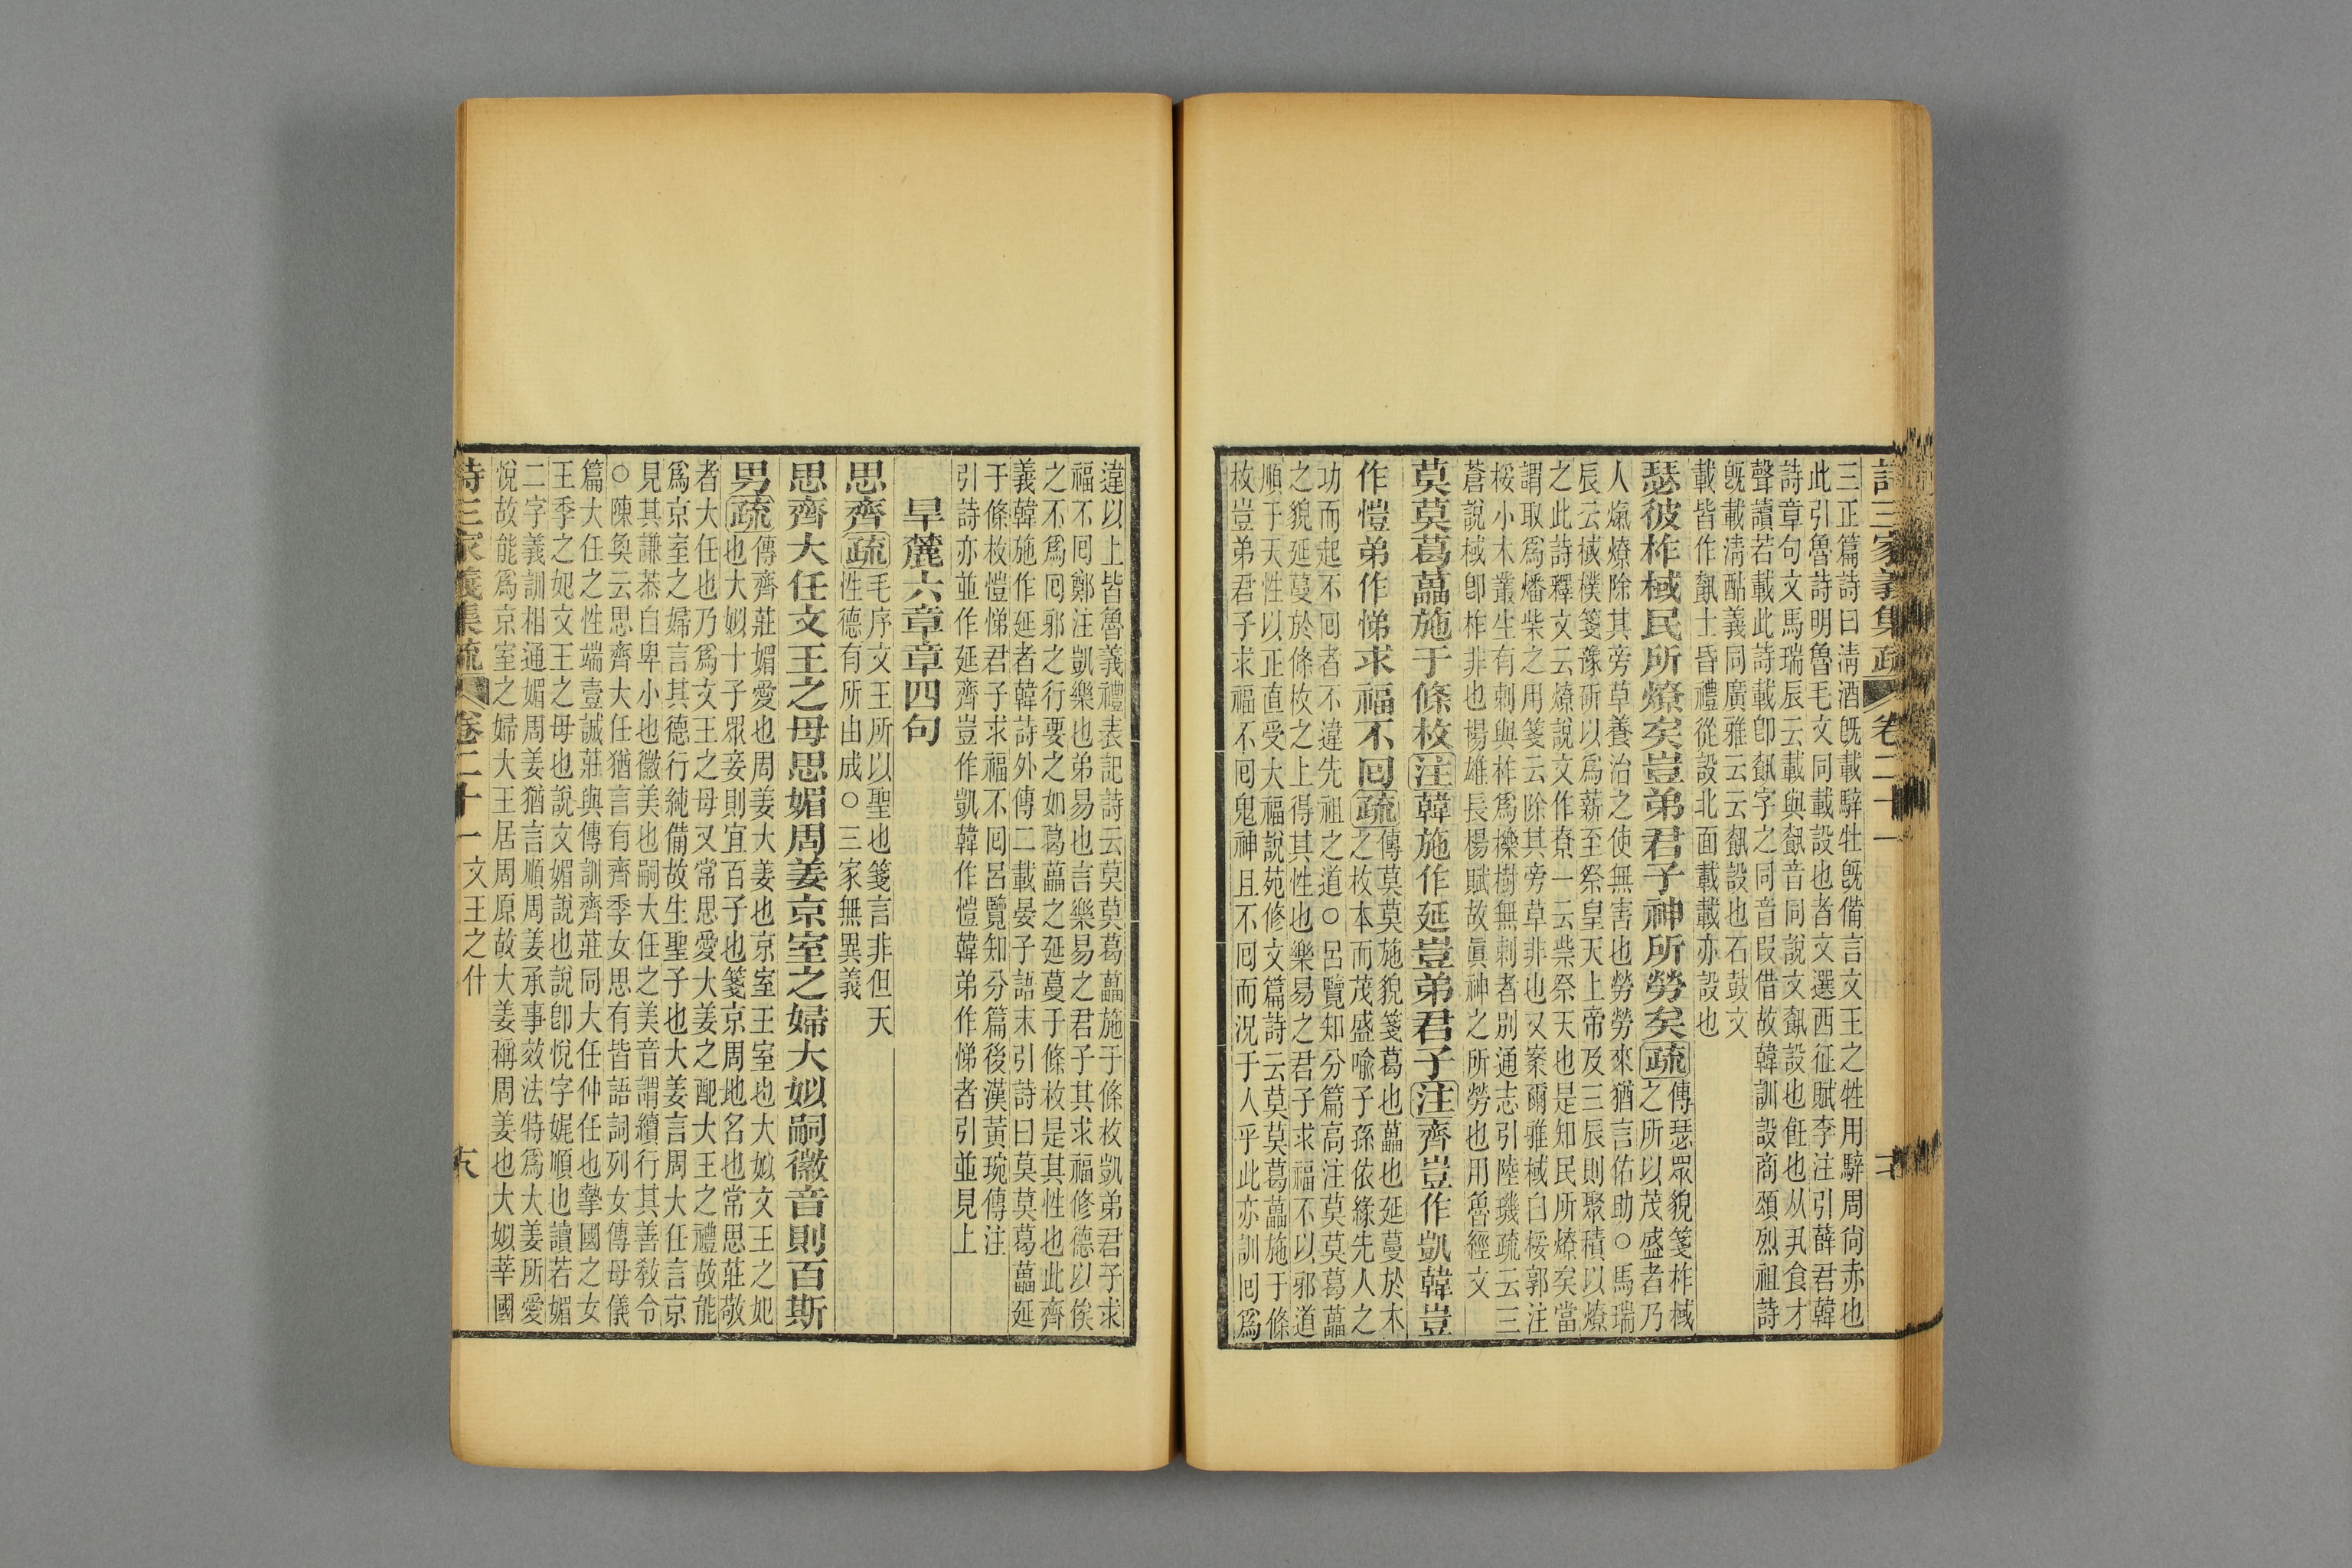 詩三家義集疏 卷二十一
三正篇詩曰淸酒旣載騂牡旣備言文王之牲用騂周尙赤也
此引魯詩明魯毛文同載設也者文選西征賦李注引薛君韓
詩章句文馬瑞辰云載與𩛥音同說文𩛥設也飪也从丮食才
聲讀若載此詩載卽𩛥字之同音叚借故韓訓設商頌烈祖詩
旣載淸酤義同廣雅云云𩛥設也石鼓文
載皆作𩛥士昏禮從設北面載載亦設也
瑟彼柞棫民所燎矣豈弟君子神所勞矣疏
傳瑟眾貌箋柞棫
之所以茂盛者乃
人熂燎除其旁草養治之使無害也勞勞來猶言佑助○馬瑞
辰云棫樸箋豫斫以爲薪至祭皇天上帝及三辰則聚積以燎
之此詩釋文云燎說文作尞一云柴祭天也是知民所燎矣當
謂取爲燔柴之用箋云除其旁草非也又案爾雅棫白桵郭注
桵小木叢生有刺與柞爲櫟樹無刺者別通志引陸璣疏云三
蒼說棫卽柞非也楊雄長楊賦故眞神之所勞也用魯經文
莫莫葛藟施于條枚注韓施作延豈弟君子注齊豈作凱韓豈
作愷弟作悌求福不囘疏
傳莫莫施貌箋葛也藟也延蔓於木
之枚本而茂盛喩子孫依緣先人之
功而起不囘者不違先祖之道○呂覽知分篇高注莫莫葛藟
之貌延蔓於條枚之上得其性也樂易之君子求福不以邪道
順于天性以正直受大福說苑修文篇詩云莫莫葛藟施于條
枚豈弟君子求福不囘鬼神且不囘而況于人乎此亦訓囘爲
違以上皆魯義禮表記詩云莫莫葛藟施于條枚凱弟君子求
福不囘鄭注凱樂也弟易也言樂易之君子其求福修德以俟
之不爲囘邪之行要之如葛藟之延蔓于條枚是其性也此齊
義韓施作延者韓詩外傳二載晏子語末引詩曰莫莫葛藟延
于條枚愷悌君子求福不囘呂覽知分篇後漢黃琬傳注
引詩亦並作延齊豈作凱韓作愷韓弟作悌者引並見上
旱麓六章章四句
思齊疏
毛序文王所以聖也箋言非但天
性德有所由成○三家無異義
思齊大任文王之母思媚周姜京室之婦大姒嗣徽音則百斯
男疏
傳齊莊媚愛也周姜大姜也京室王室也大姒文王之妃
也大姒十子眾妾則宜百子也箋京周地名也常思莊敬
者大任也乃爲文王之母又常思愛大姜之配大王之禮故能
爲京室之婦言其德行純備故生聖子也大姜言周大任言京
見其謙恭自卑小也徽美也嗣大任之美音謂續行其善敎令
○陳奐云思齊大任猶言有齊季女思有皆語詞列女傳母儀
篇大任之性端壹誠莊與傳訓齊莊同大任仲任也摯國之女
王季之妃文王之母也說文媚說也說卽悅字娓順也讀若媚
二字義訓相通媚周姜猶言順周姜承事效法特爲大姜所愛
悅故能爲京室之婦大王居周原故大姜稱周姜也大姒莘國
詩三家義集疏 卷二十一 文王之什